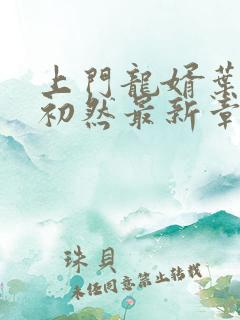 上門龍婿葉
初然最新章
珠貝
未任同意禁止转载